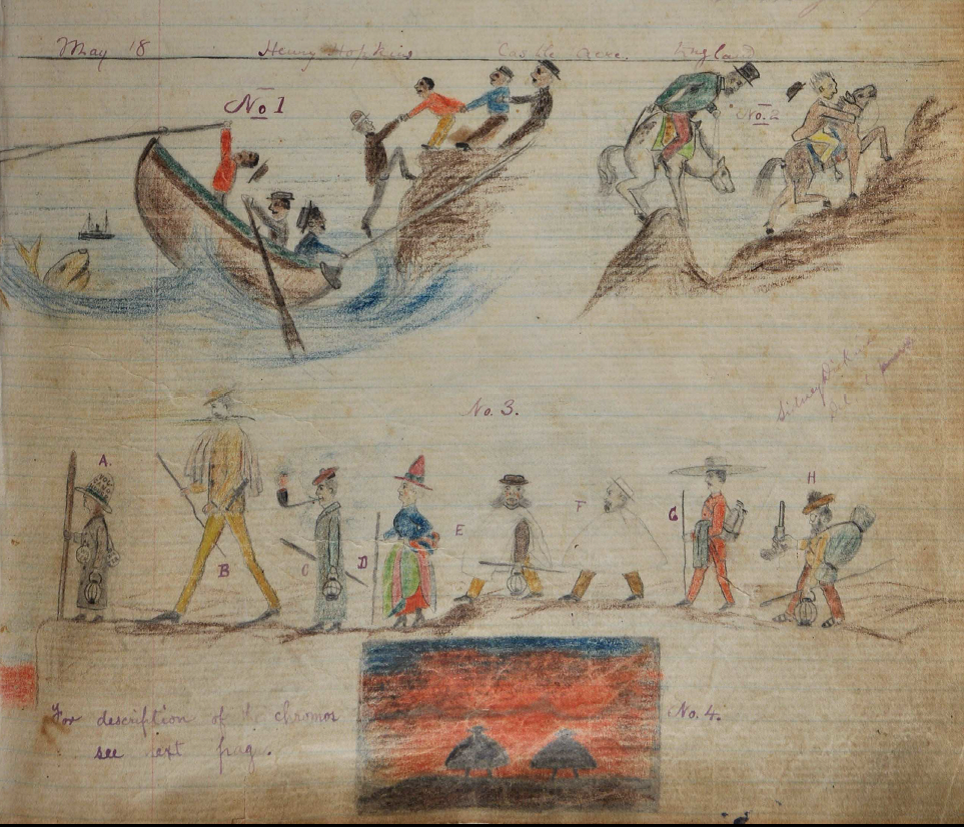 May 18 Henry Hopkins Castle Acre. England
No 1
No. 2
No. 3.
Sidney
A.
B
C
D
E
F
G
H
For description of the chromos
see next page.
No. 4.